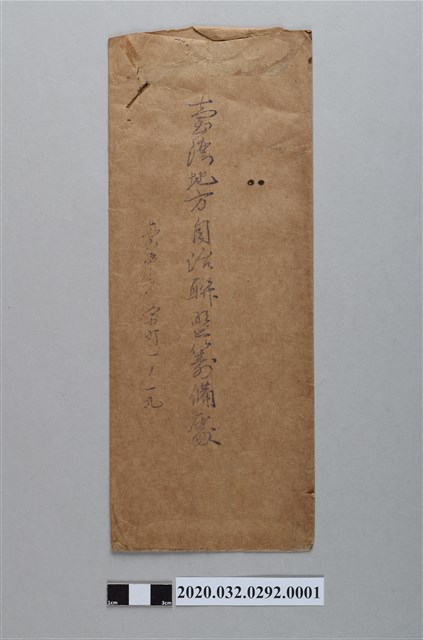 臺灣地方自治聯盟籌備處
臺中市榮町一ノ一九
1cm
3cm
2020.032.0292.0001